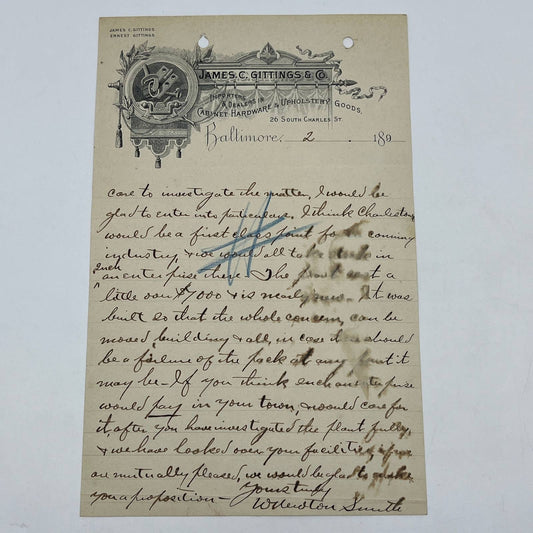 JAMES C. GITTINGS.
ERNEST GITTINGS.
JAMES C. GITTINGS & CO.
IMPORTERS
& DEALERS IN
CABINET HARDWARE & UPHOLSTERY GOODS,
26 SOUTH CHARLES ST.
Baltimore, 2 189
care to investigate the matter, I would be
glad to enter into particulars. I think Charleston
would be a first class point for the canning
industry, & we would all take stock in
such
an enterprise there & The plant cost a
little over $7000 & is nearly new. It was
built so that the whole concern, can be
moved, building & all, in case there should
be a failure of the pack at any point it
may be - If you think such an enterprise
would pay in your town, & would care for
it, after you have investigated the plant fully,
& we have looked over your facilities, if we
are mutually pleased, we would be glad to make
you a proposition -
Yours truly
W Newton Smith